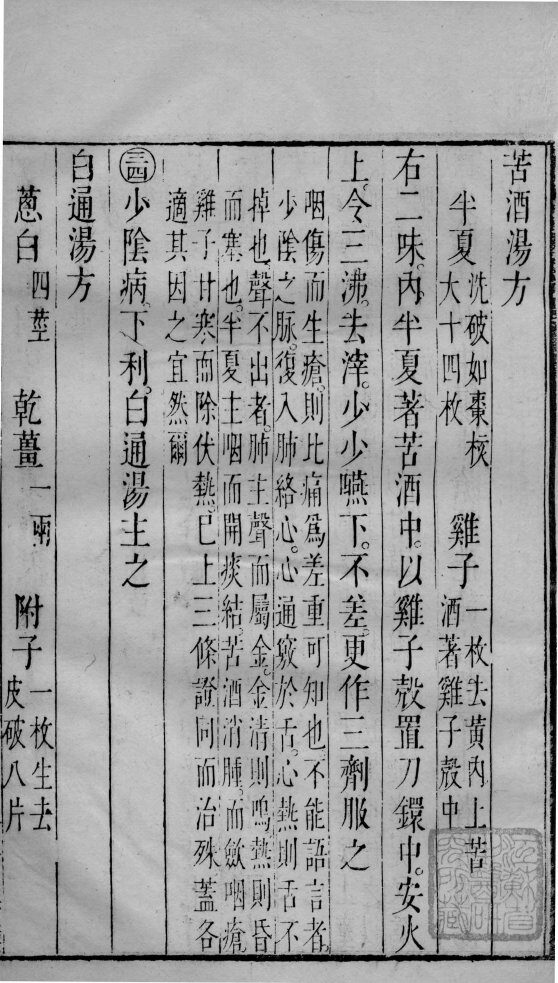 苦酒湯方
半夏 洗破如棗核大十四枚 雞子 一枚去黃內上苦酒著雞子殼中
右二味。內半夏著苦酒中。以雞子殼置刀鐶中。安火
上。令三沸。去滓。少少嚥下。不差。更作三劑服之
咽傷而生瘡。則比痛為差重可知也不能語言者。
少陰之脉。復入肺絡心。心通竅於舌。心熱則舌不
掉也。聲不出者。肺主聲而屬金。金清則鳴。熱則昏
而塞也。半夏主咽而開痰結。苦酒消腫。而斂咽瘡
雞子甘寒而除伏熱。已上三條證同而治殊蓋各
適其因之宜然爾
三四 少陰病。下利。白通湯主之
白通湯方
蔥白 四莖 乾薑 一兩 附子 一枚生去皮破八片